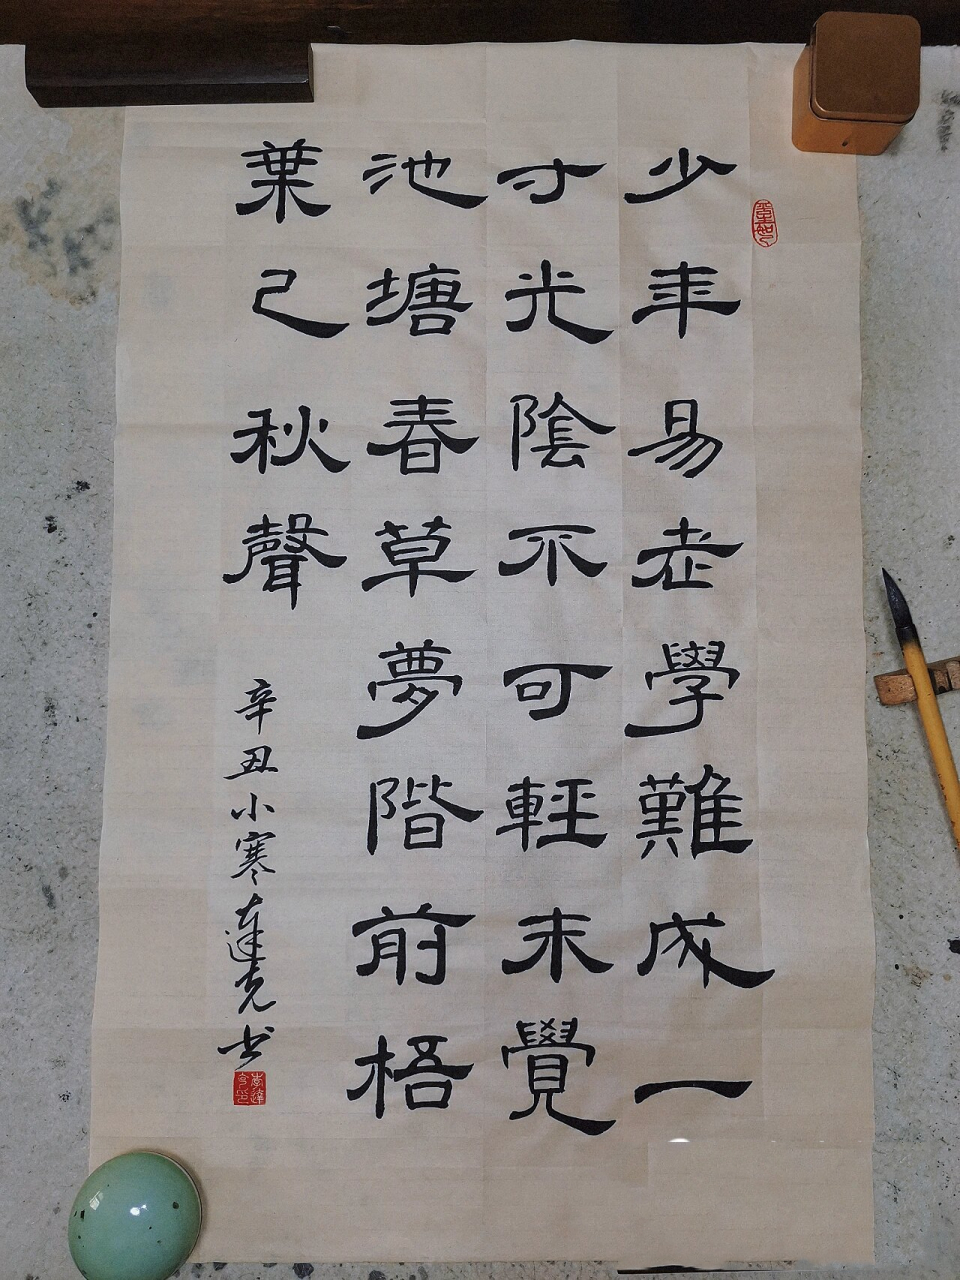 少年易老學難成一
寸光陰不可輕未覺
池塘春草夢階前梧
葉已秋聲
辛丑小寒達克书